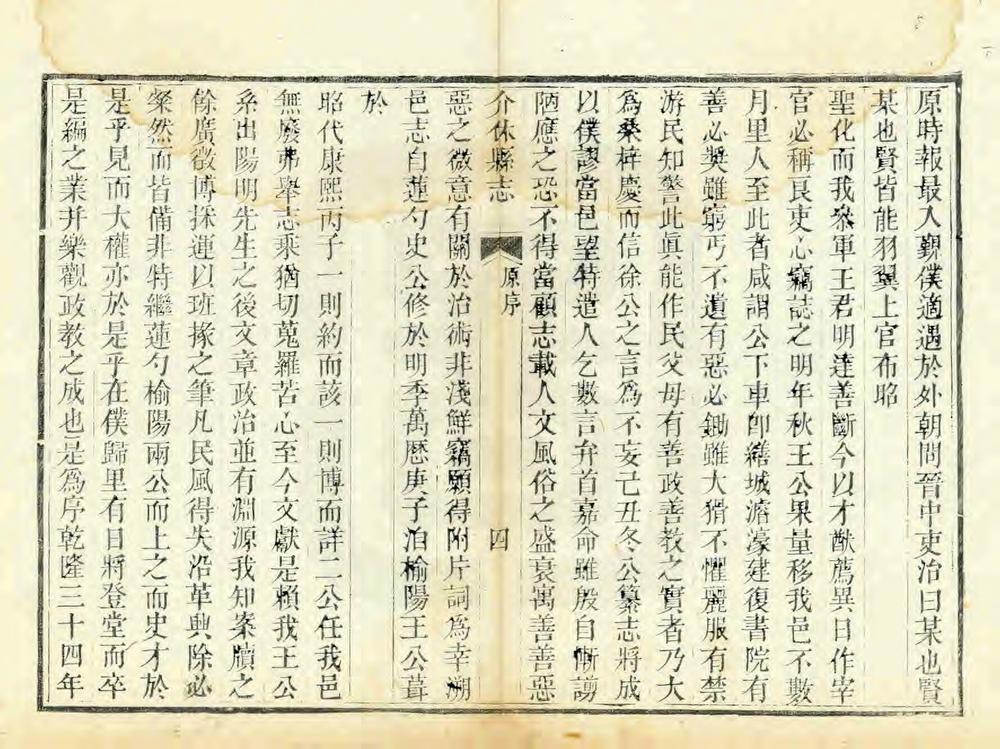 原時報最入覲僕適遇於外朝問晉中吏治曰某也賢
某也賢皆能羽翼上官布昭
聖化而我叅軍王君明達善斷今以才猷薦異日作宰
官必稱良吏心竊誌之明年秋王公果量移我邑不數
月里人至此者咸謂公下車卽繕城濬濠建復書院有
善必奬雖窮丐不遺有惡必鋤雖大猾不懼麗服有禁
游民知警此眞能作民父母有善政善教之實者乃大
爲桑梓慶而信徐公之言爲不妄己丑冬公纂志將成
以僕謬當邑望特遣人乞數言弁首嘉命雖殷自慚謭
陋應之恐不得當顧志載人文風俗之盛衰寓善善惡
介休縣志
原序
四
惡之微意有關於治術非淺鮮竊願得附片詞爲幸溯
邑志自蓮勺史公修於明季萬歷庚子洎榆陽王公葺
於
昭代康熙丙子一則約而該一則博而詳二公任我邑
無廢弗舉志乘猶切蒐羅苦心至今文獻是賴我王公
系出陽明先生之後文章政治並有淵源我知案牘之
餘廣徵博採運以班掾之筆凡民風得失沿革興除必
粲然而皆備非特繼蓮勺榆陽兩公而上之而史才於
是乎見而大權亦於是乎在僕歸里有日將登堂而卒
是編之業幷樂觀政教之成也是爲序乾隆三十四年